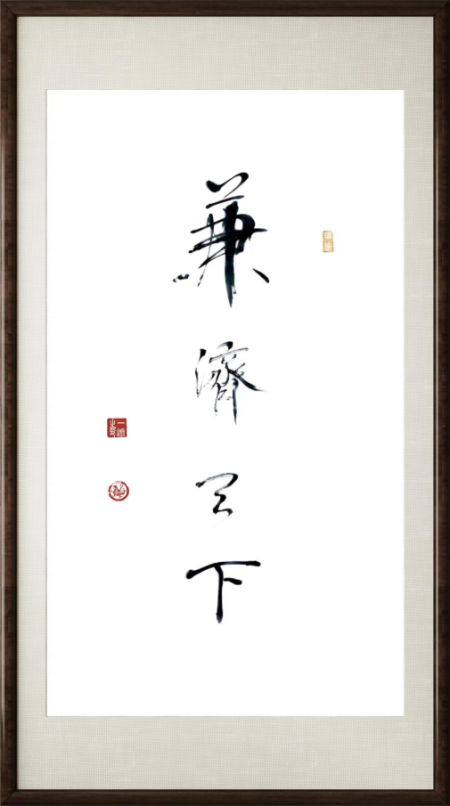 兼濟天下